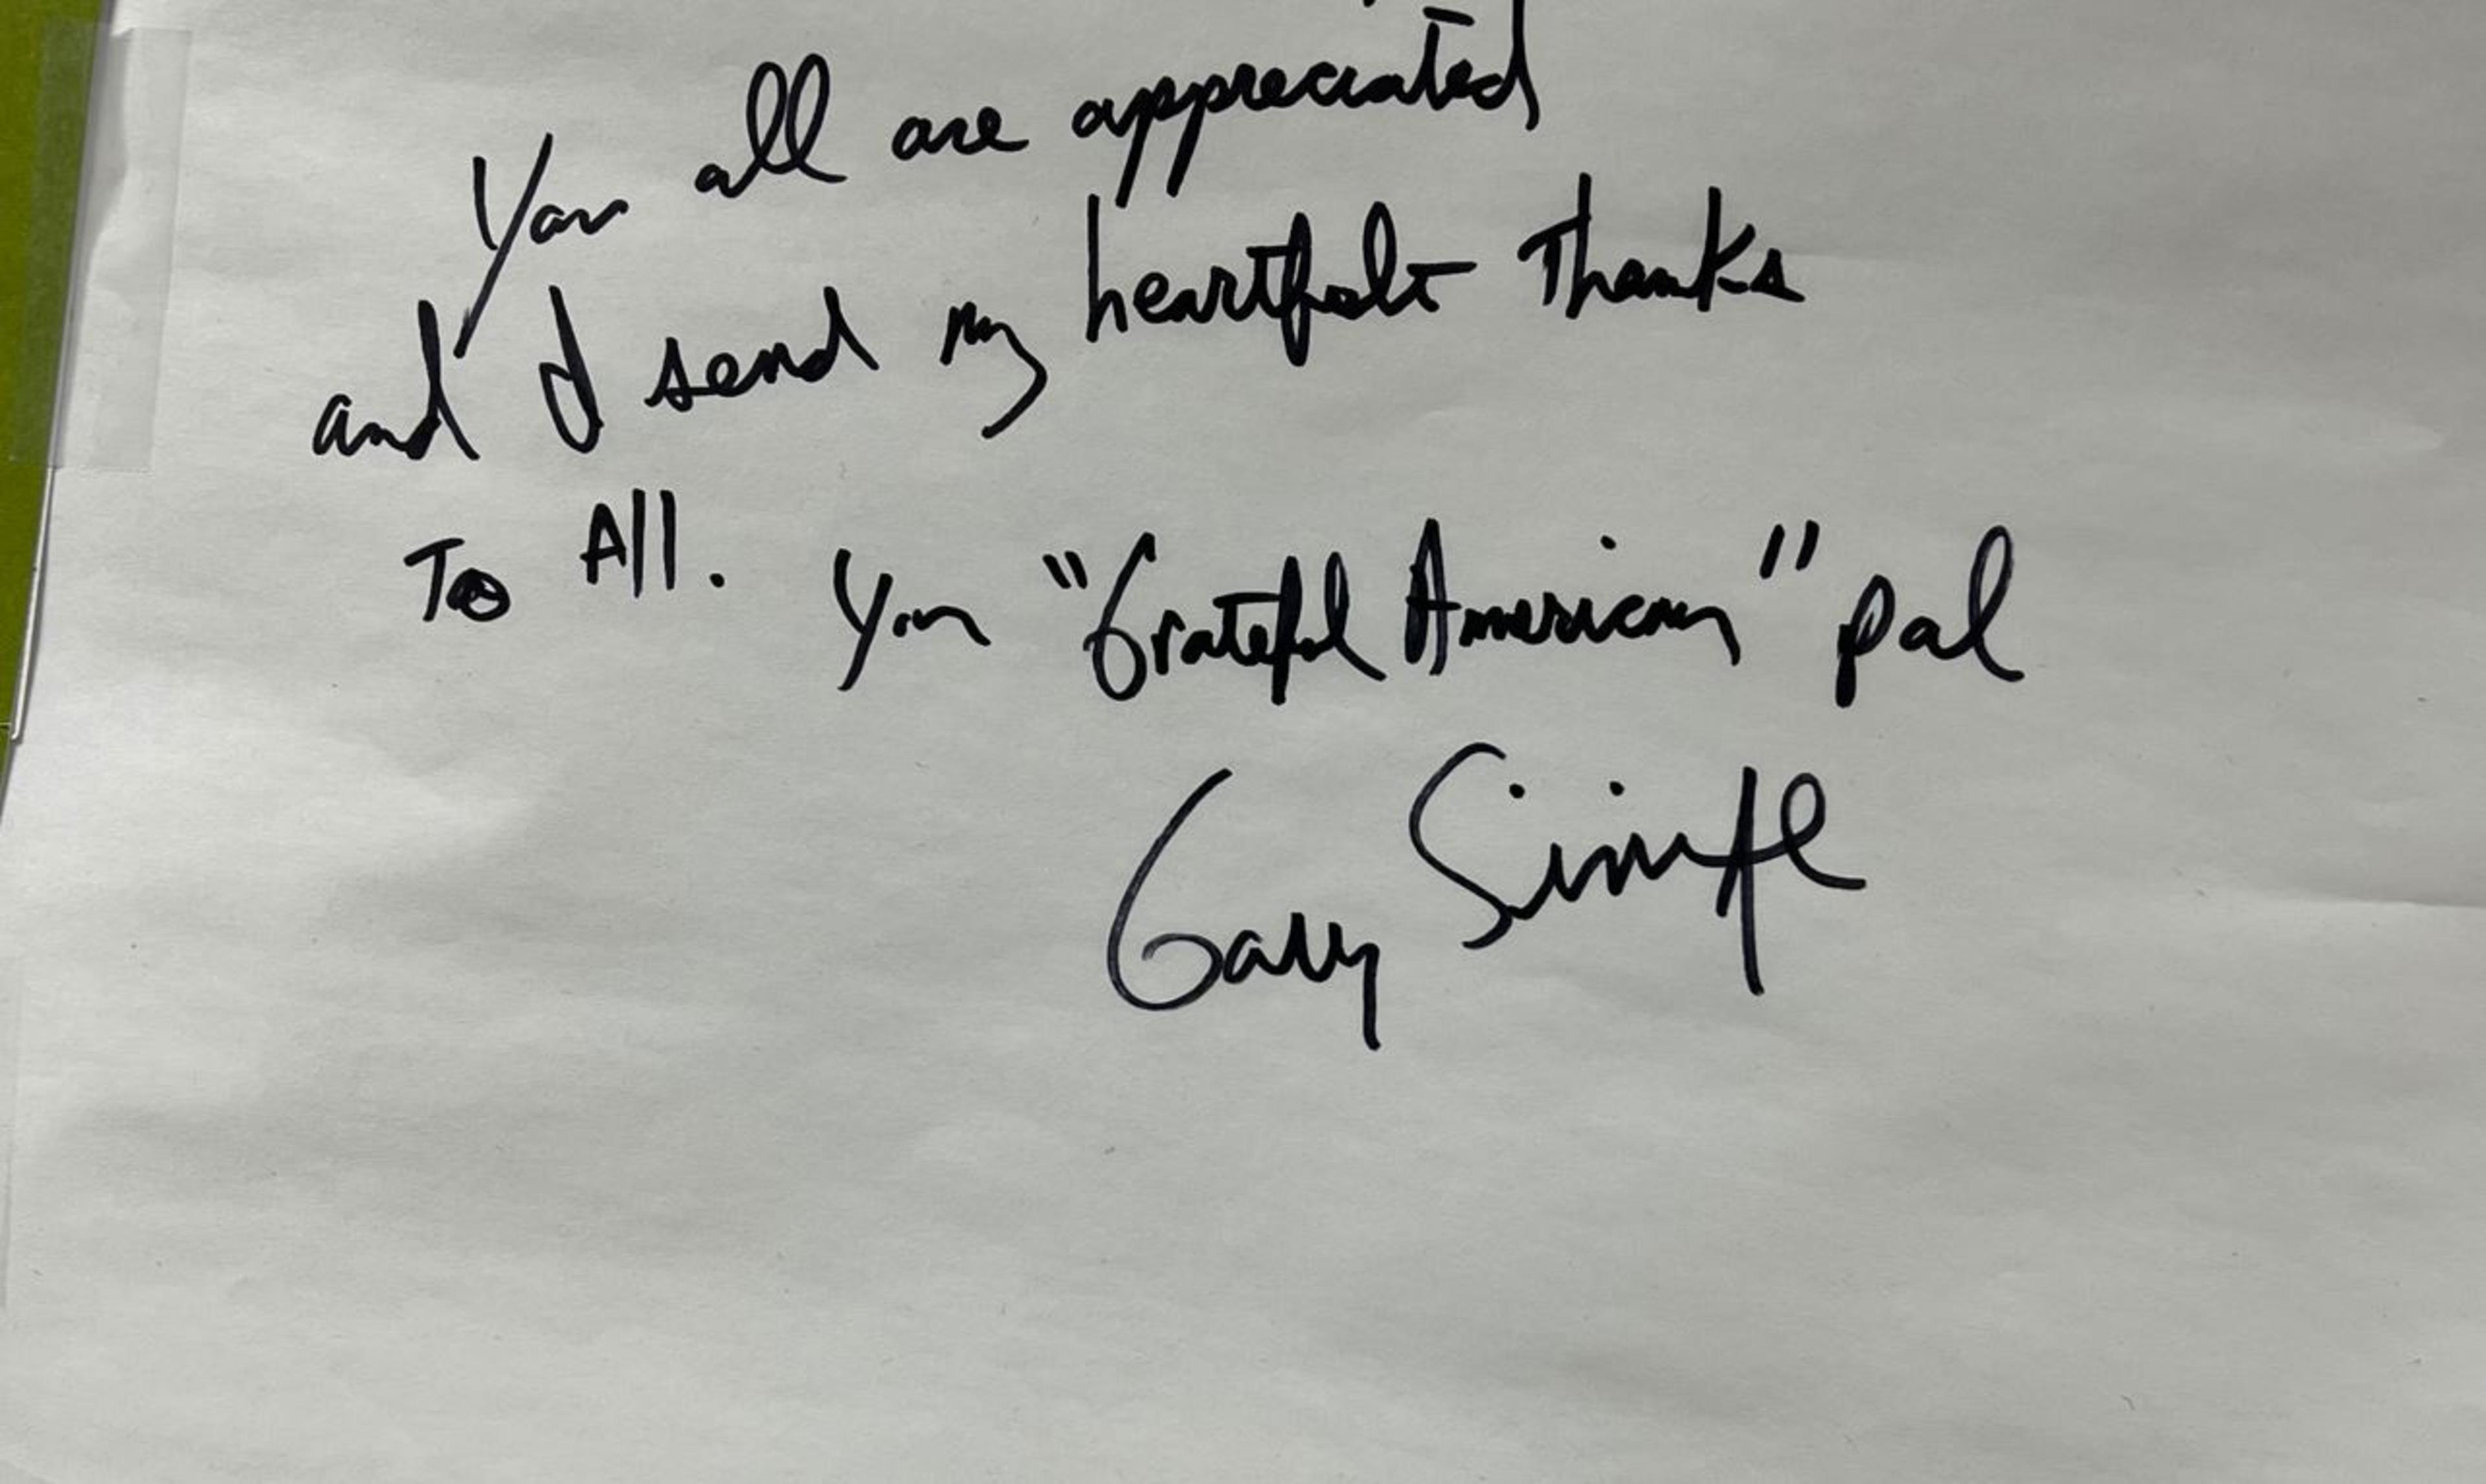 You all are appreciated
and I send my heartfelt Thanks
To All. Your "Grateful American" pal
Gary Sinise